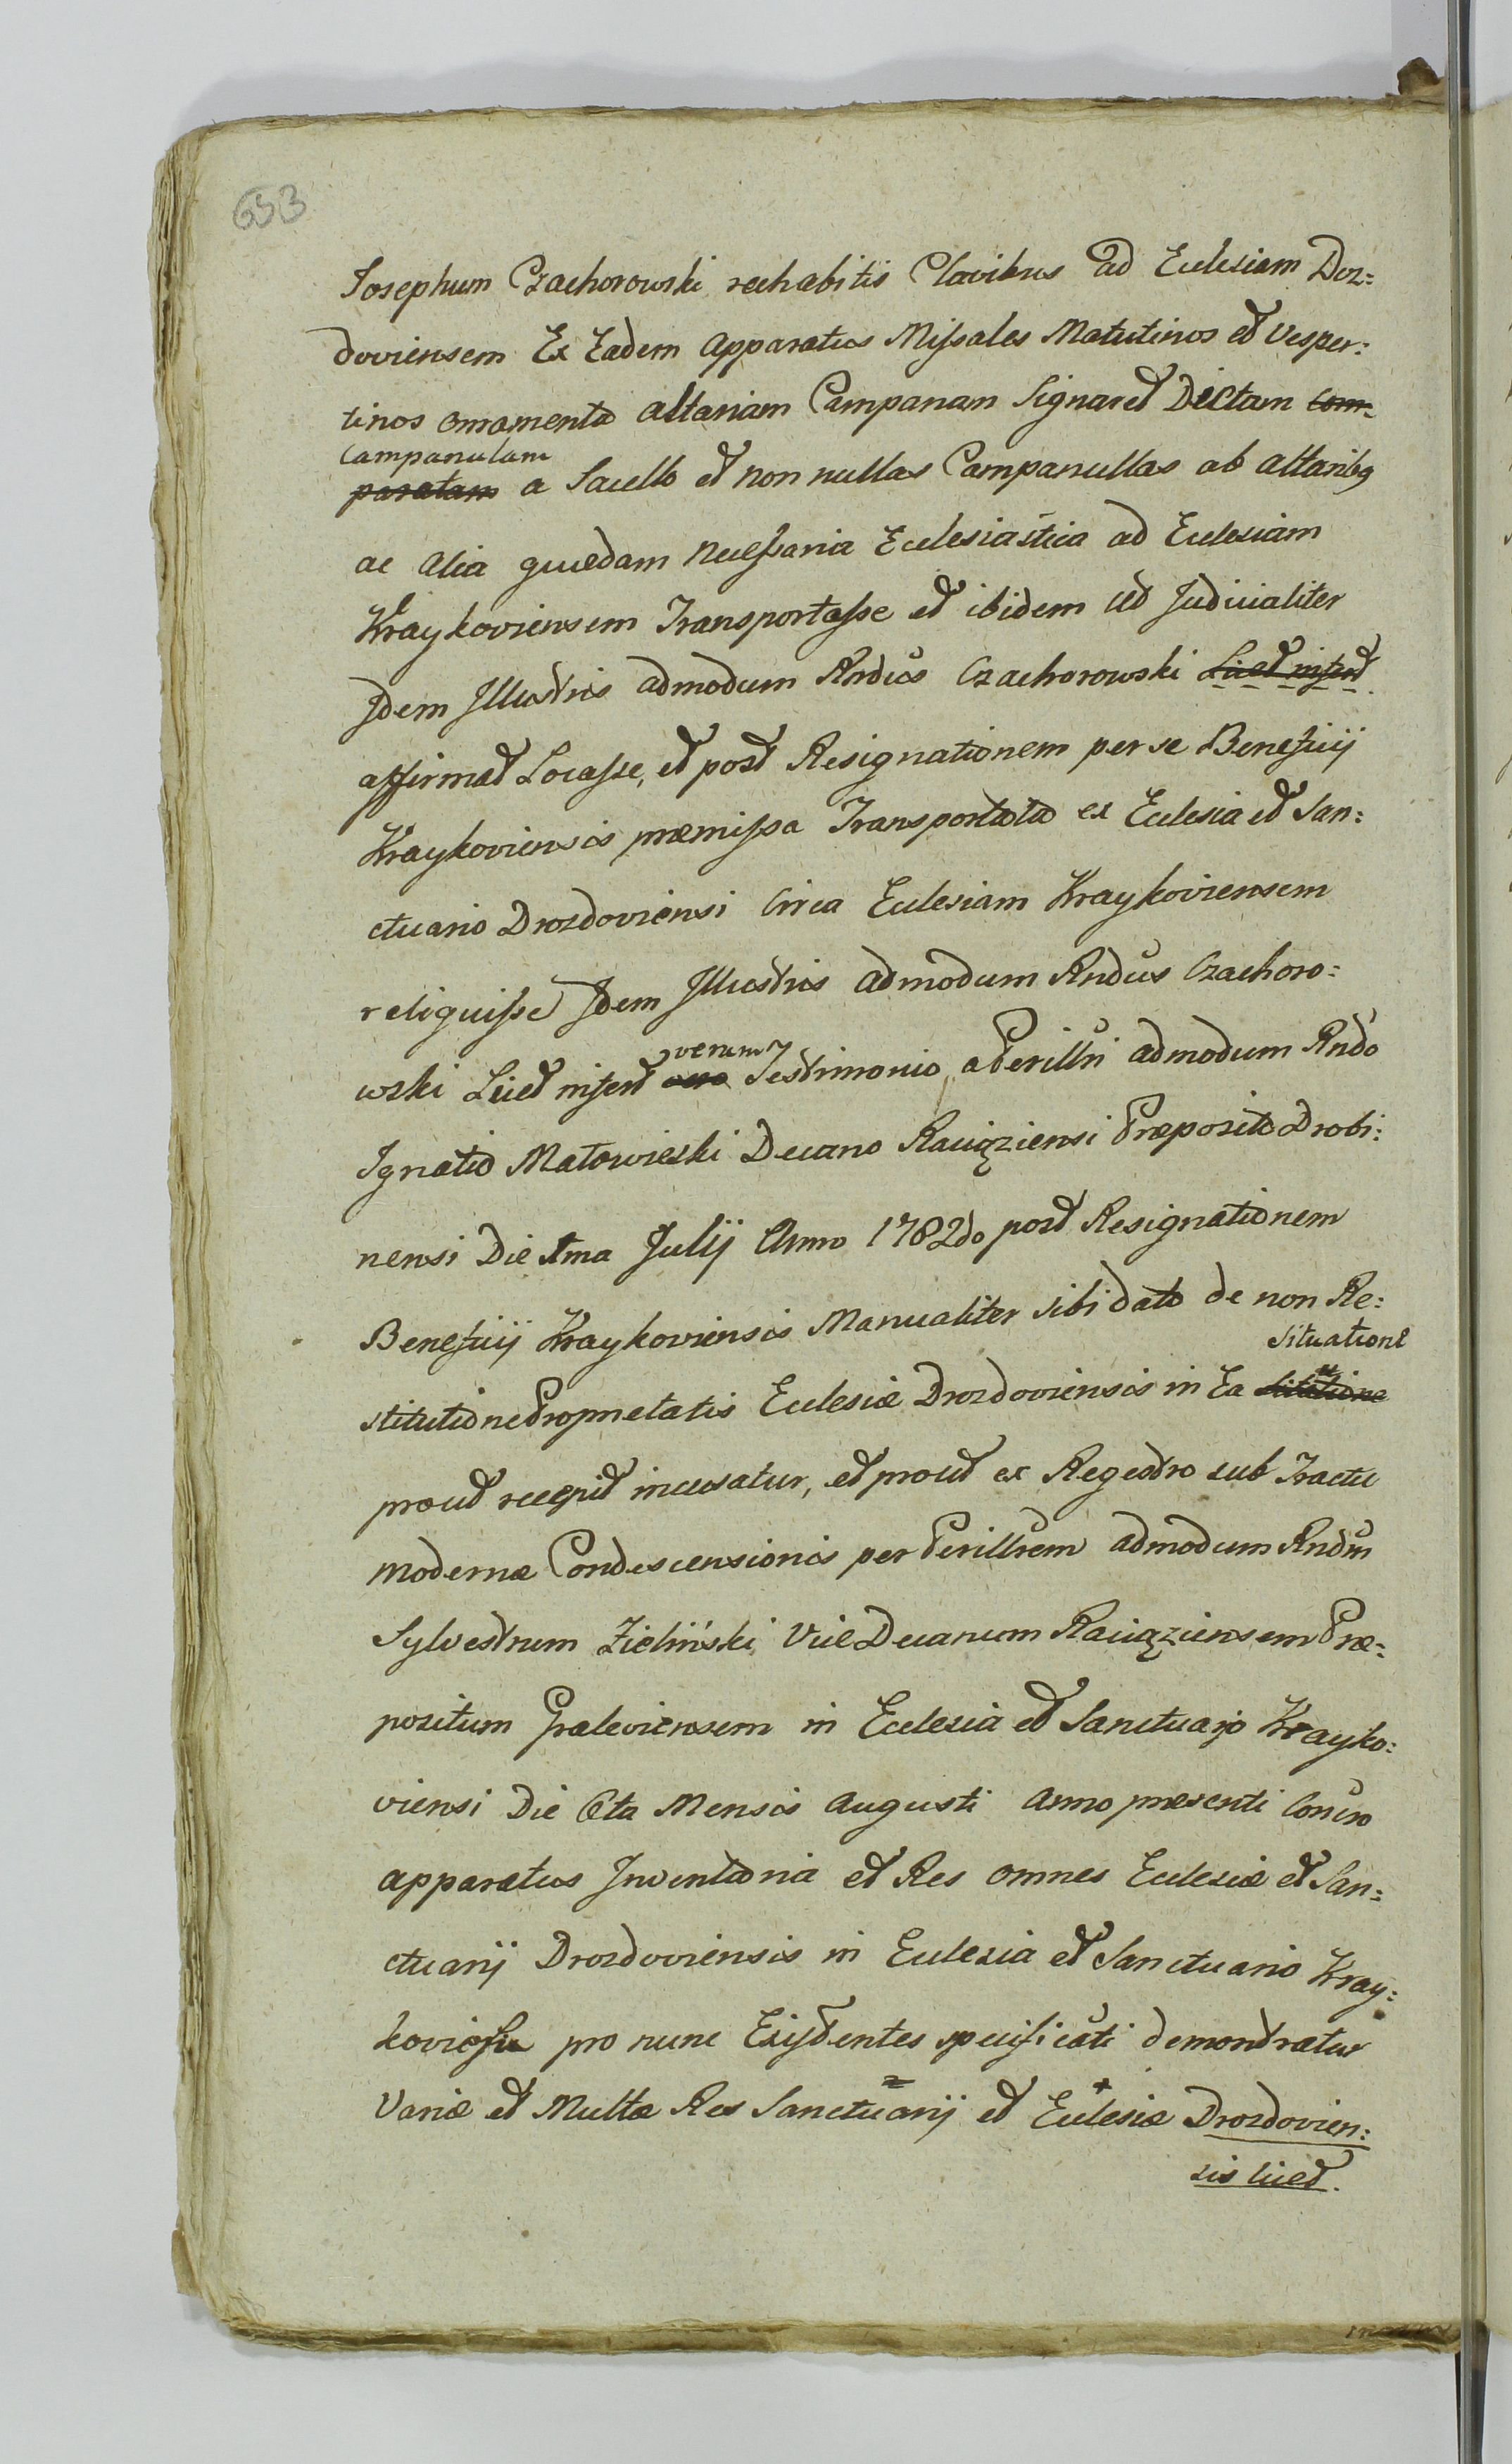 653
Josephum Czachorowski rechabitis Clavibus ad Ecclesiam Droz=
doviensem Ex Eadem Apparatus Missales Matutinos et Vesper=
tinos ornamenta altarium Campanam Signaret Dictam com-
Campanulam
paratam a Sacello et non nullas Campanullas ab altaribg
ac alia quædam necessaria Ecclesiastica ad Ecclesiam
Kraykoviensem Transportasse et ibidem ut Judicialiter
Jdem Illustris admodum Rndus Czachorowski Licet infert
affirmat Locasse, et post Resignationem per se Beneficij
Kraykoviensis præmissa Transportata ex Ecclesia et San=
ctuario Drozdoviensi Circa Ecclesiam Kraykoviensem
reliquisse Jdem Jllustris admodum Rndus Czachoro=
verum
wski Licet infert Testimonio a Perillri admodum Rndo
Ignatio Małowieski Decano Raciąziensi Præposito Drobi=
nensi Die 1ma Julij Anno 1782do post Resignationem
Beneficij Kraykoviensis Manualiter sibi dato de non Re=
situatione
stitutione Proprietatis Ecclesiæ Drozdoviensis in Ea
prout recepit incusatur, et prout ex Regestro sub Tractu
modernæ Condescensionis per Perillrem admodum Rndum
Sylvestrum Zieliński ViceDecanum Raciąziensem Præ=
positum Graleviensem in Ecclesia et Sanctuario Krayko=
viensi Die 6ta Mensis Augusti Anno præsenti
apparatus Inventaria et Res omnes Ecclesiæ et San=
ctuarij Drozdoviensis in Ecclesia et Sanctuario Kray=
pro nunc Existentes specificati demonstratur
Variæ et Multæ Res Sanctuarij et Ecclesiæ Drozdovien=
sis licet.